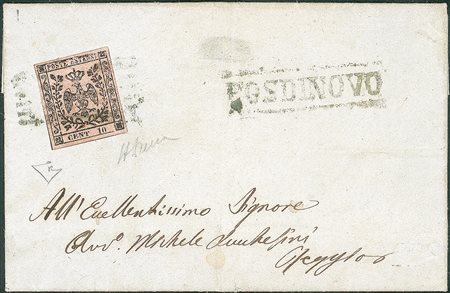 POSTE ESTENSI
CENT 10
FOSDINOVO
All' Eccellentissimo Signore
Avv.o Michele Lucchesini
Reggio